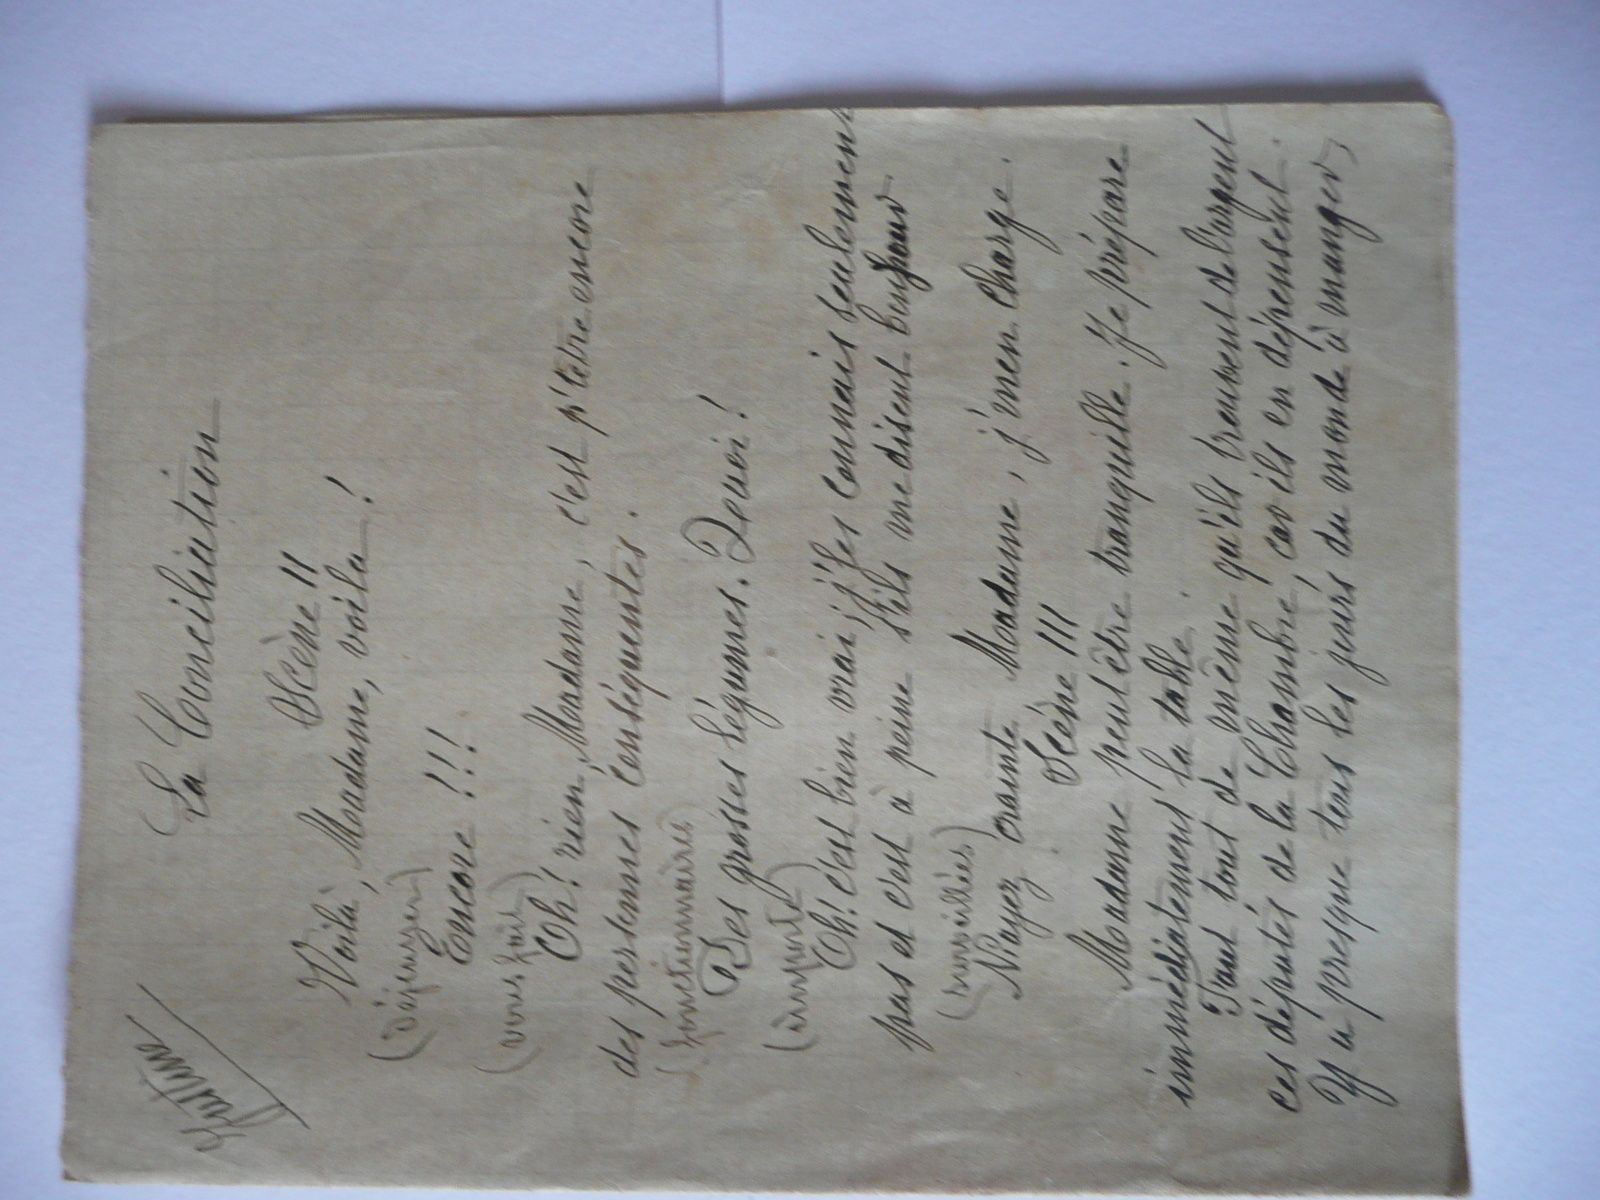 Justine
La Conciliation
Scène II
Voilà, Madame, voilà!
(déjeuner)
Encore!!!
(vous fait)
Oh! rien, Madame, c'est p't'être encore
des personnes conséquentes.
(fonctionnaires)
Des grosses légumes. Quoi!
(importe)
Oh! c'est bien vrai, j'les connais seulement
pas et c'est à peine s'ils me disent bonjour
(surveillés)
N'ayez crainte Madame, j'm'en charge.
Scène III
Madame peut être tranquille. Je prépare
immédiatement la table.
Faut tout de même qu'ils trouvent de l'argent
ces députés de la Chambre, car ils en dépensent.
Y a presque tous les jours du monde à manger,